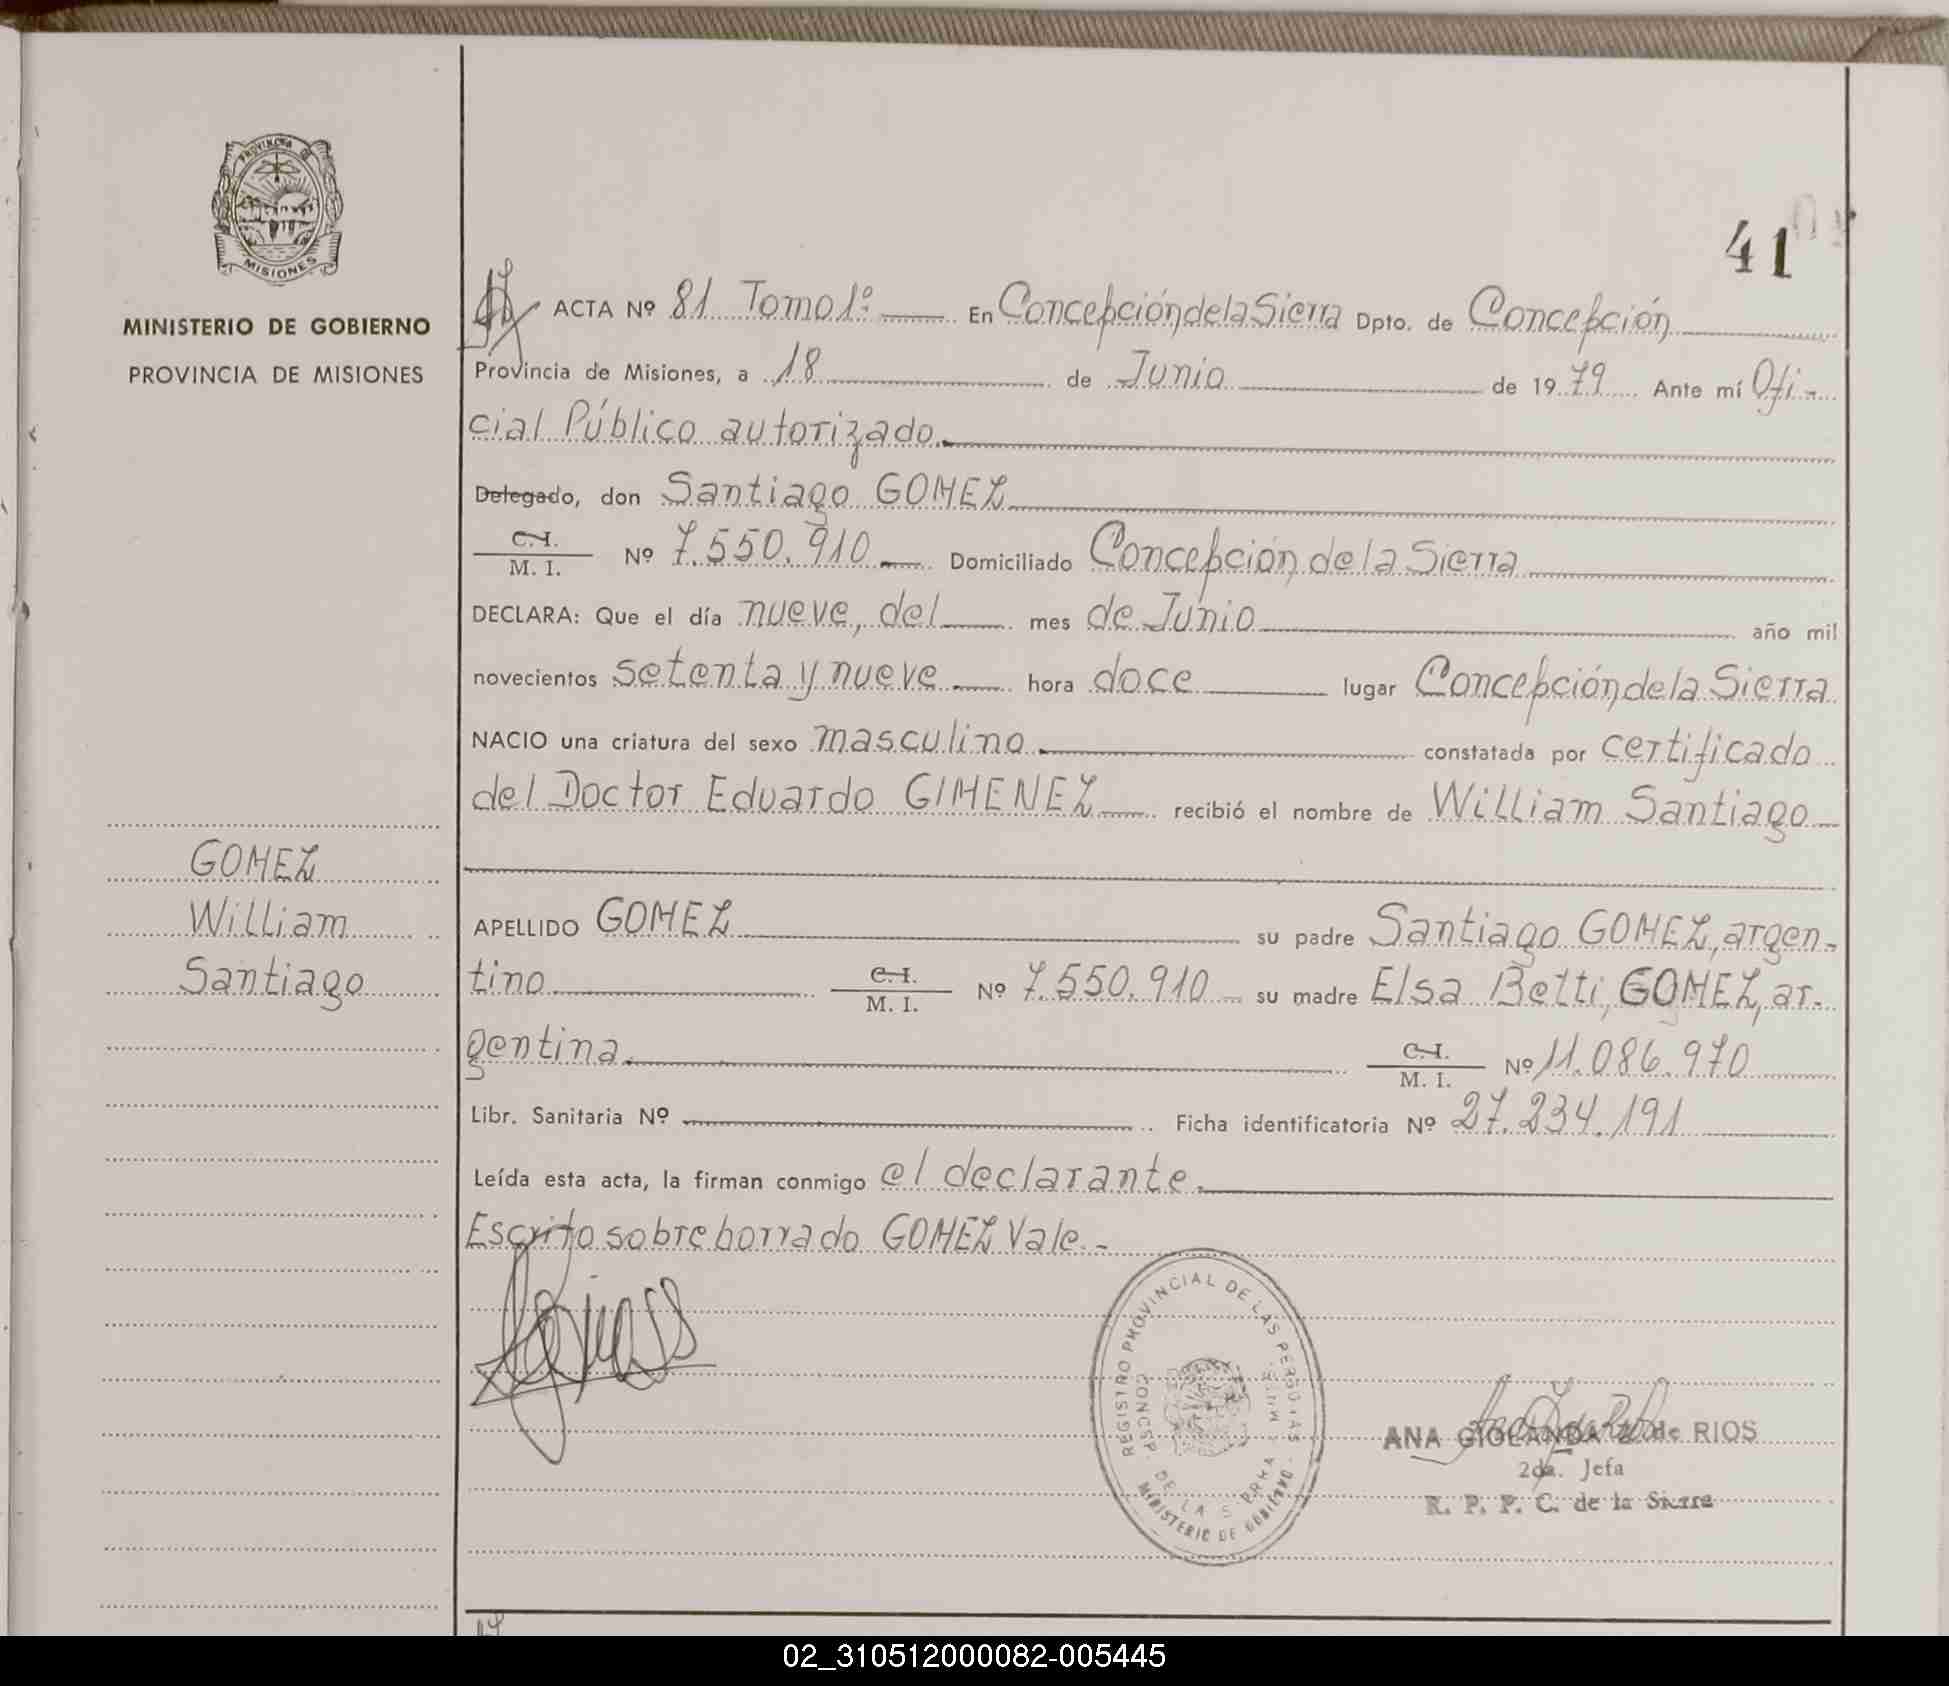 PROVINCIA DE
MISIONES
MINISTERIO DE GOBIERNO
PROVINCIA DE MISIONES
GOMEZ
William
Santiago
41
ACTA Nº 81 Tomo 1º. En Concepción de la Sierra Dpto. de Concepción
Provincia de Misiones, a 18 de Junio de 1979 Ante mí Ofi-
cial Público autorizado.
Delegado, don Santiago GOMEZ
C.I.
M. I. Nº 7.550.910 Domiciliado Concepción de la Sierra
DECLARA: Que el día nueve, del mes de Junio año mil
novecientos setenta y nueve hora doce lugar Concepción de la Sierra
NACIO una criatura del sexo masculino constatada por certificado
del Doctor Eduardo GIMENEZ recibió el nombre de William Santiago
APELLIDO GOMEZ su padre Santiago GOMEZ, argen-
tino C.I.
M. I. Nº 7.550.910 su madre Elsa Betti, GOMEZ, ar-
gentina. C.I.
M. I. Nº 11.086.970
Libr. Sanitaria Nº Ficha identificatoria Nº 27.234.191
Leída esta acta, la firman conmigo el declarante.
Escrito sobre borrado GOMEZ Vale.-
REGISTRO PROVINCIAL DE LAS PERSONAS
DE LA
MINISTERIO DE GOBIERNO
ANA GIOLANDA Z. de RIOS
2da. Jefa
R. P. P. C. de la Sierra
02_310512000082-005445